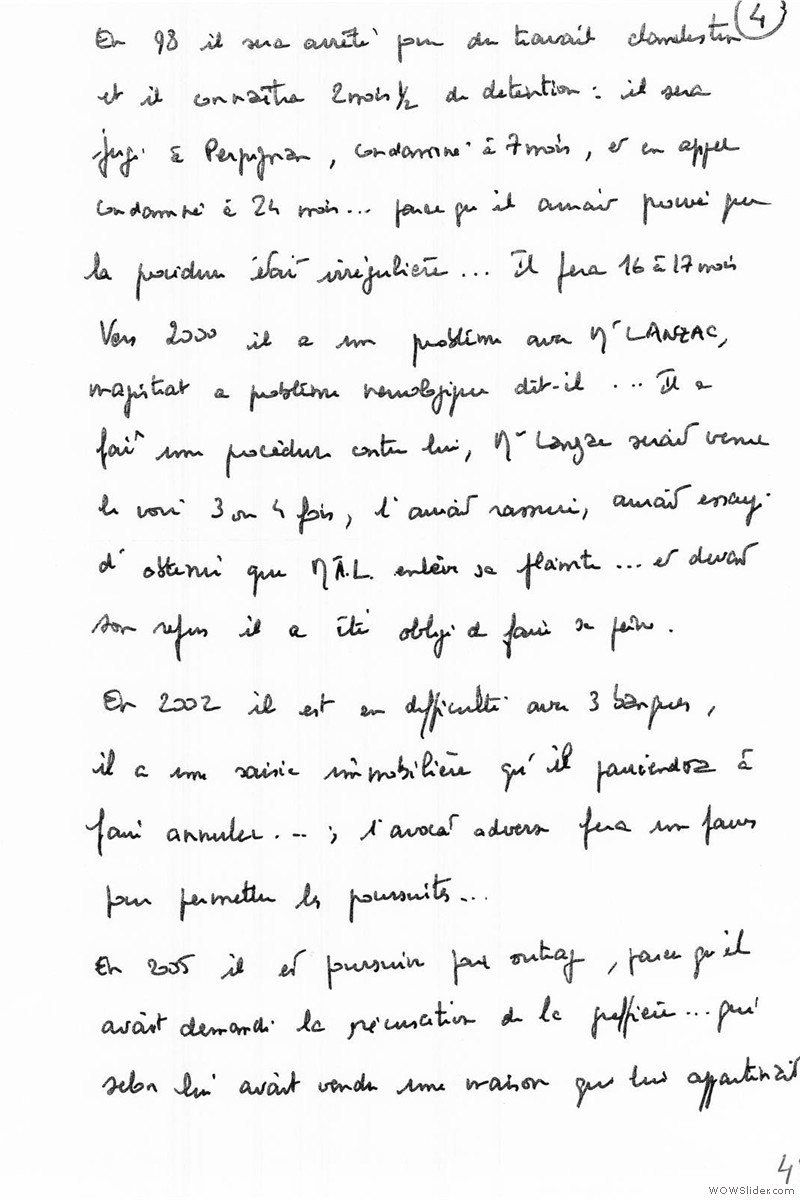 4
En 98 il sera arrêté pour du travail clandestin
et il connaîtra 2 mois 1/2 de détention : il sera
jugé à Perpignan, condamné à 7 mois, et en appel
condamné à 24 mois... parce qu'il aurait prouvé que
la procédure était irrégulière... Il fera 16 à 17 mois
Vers 2000 il a un problème avec Mr LANZAC,
magistrat a problème dit-il ... Il a
fait une procédure contre lui, Mr Lanzac serait venu
le voir 3 ou 4 fois, l'aurait rassuré, aurait essayé
d'obtenir que M A.L. enlève sa plainte... et devant
son refus il a été obligé de faire sa peine.
En 2002 il est en difficulté avec 3 banques,
il a une saisie immobilière qu'il parviendra à
faire annuler... ; l'avocat adverse fera un faux
pour permettre les poursuites...
En 2005 il est poursuivi pour outrage, parce qu'il
avait demandé la récusation de la greffière... qui
selon lui avait vendu une maison qui lui appartenait
4
WOWSlider.com